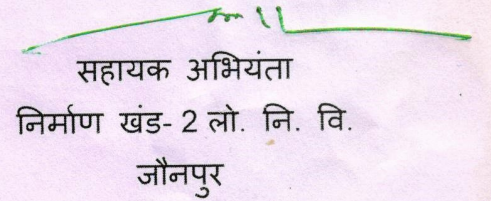 सहायक अभियंता
निर्माण खंड- 2 लो. नि. वि.
जौनपुर